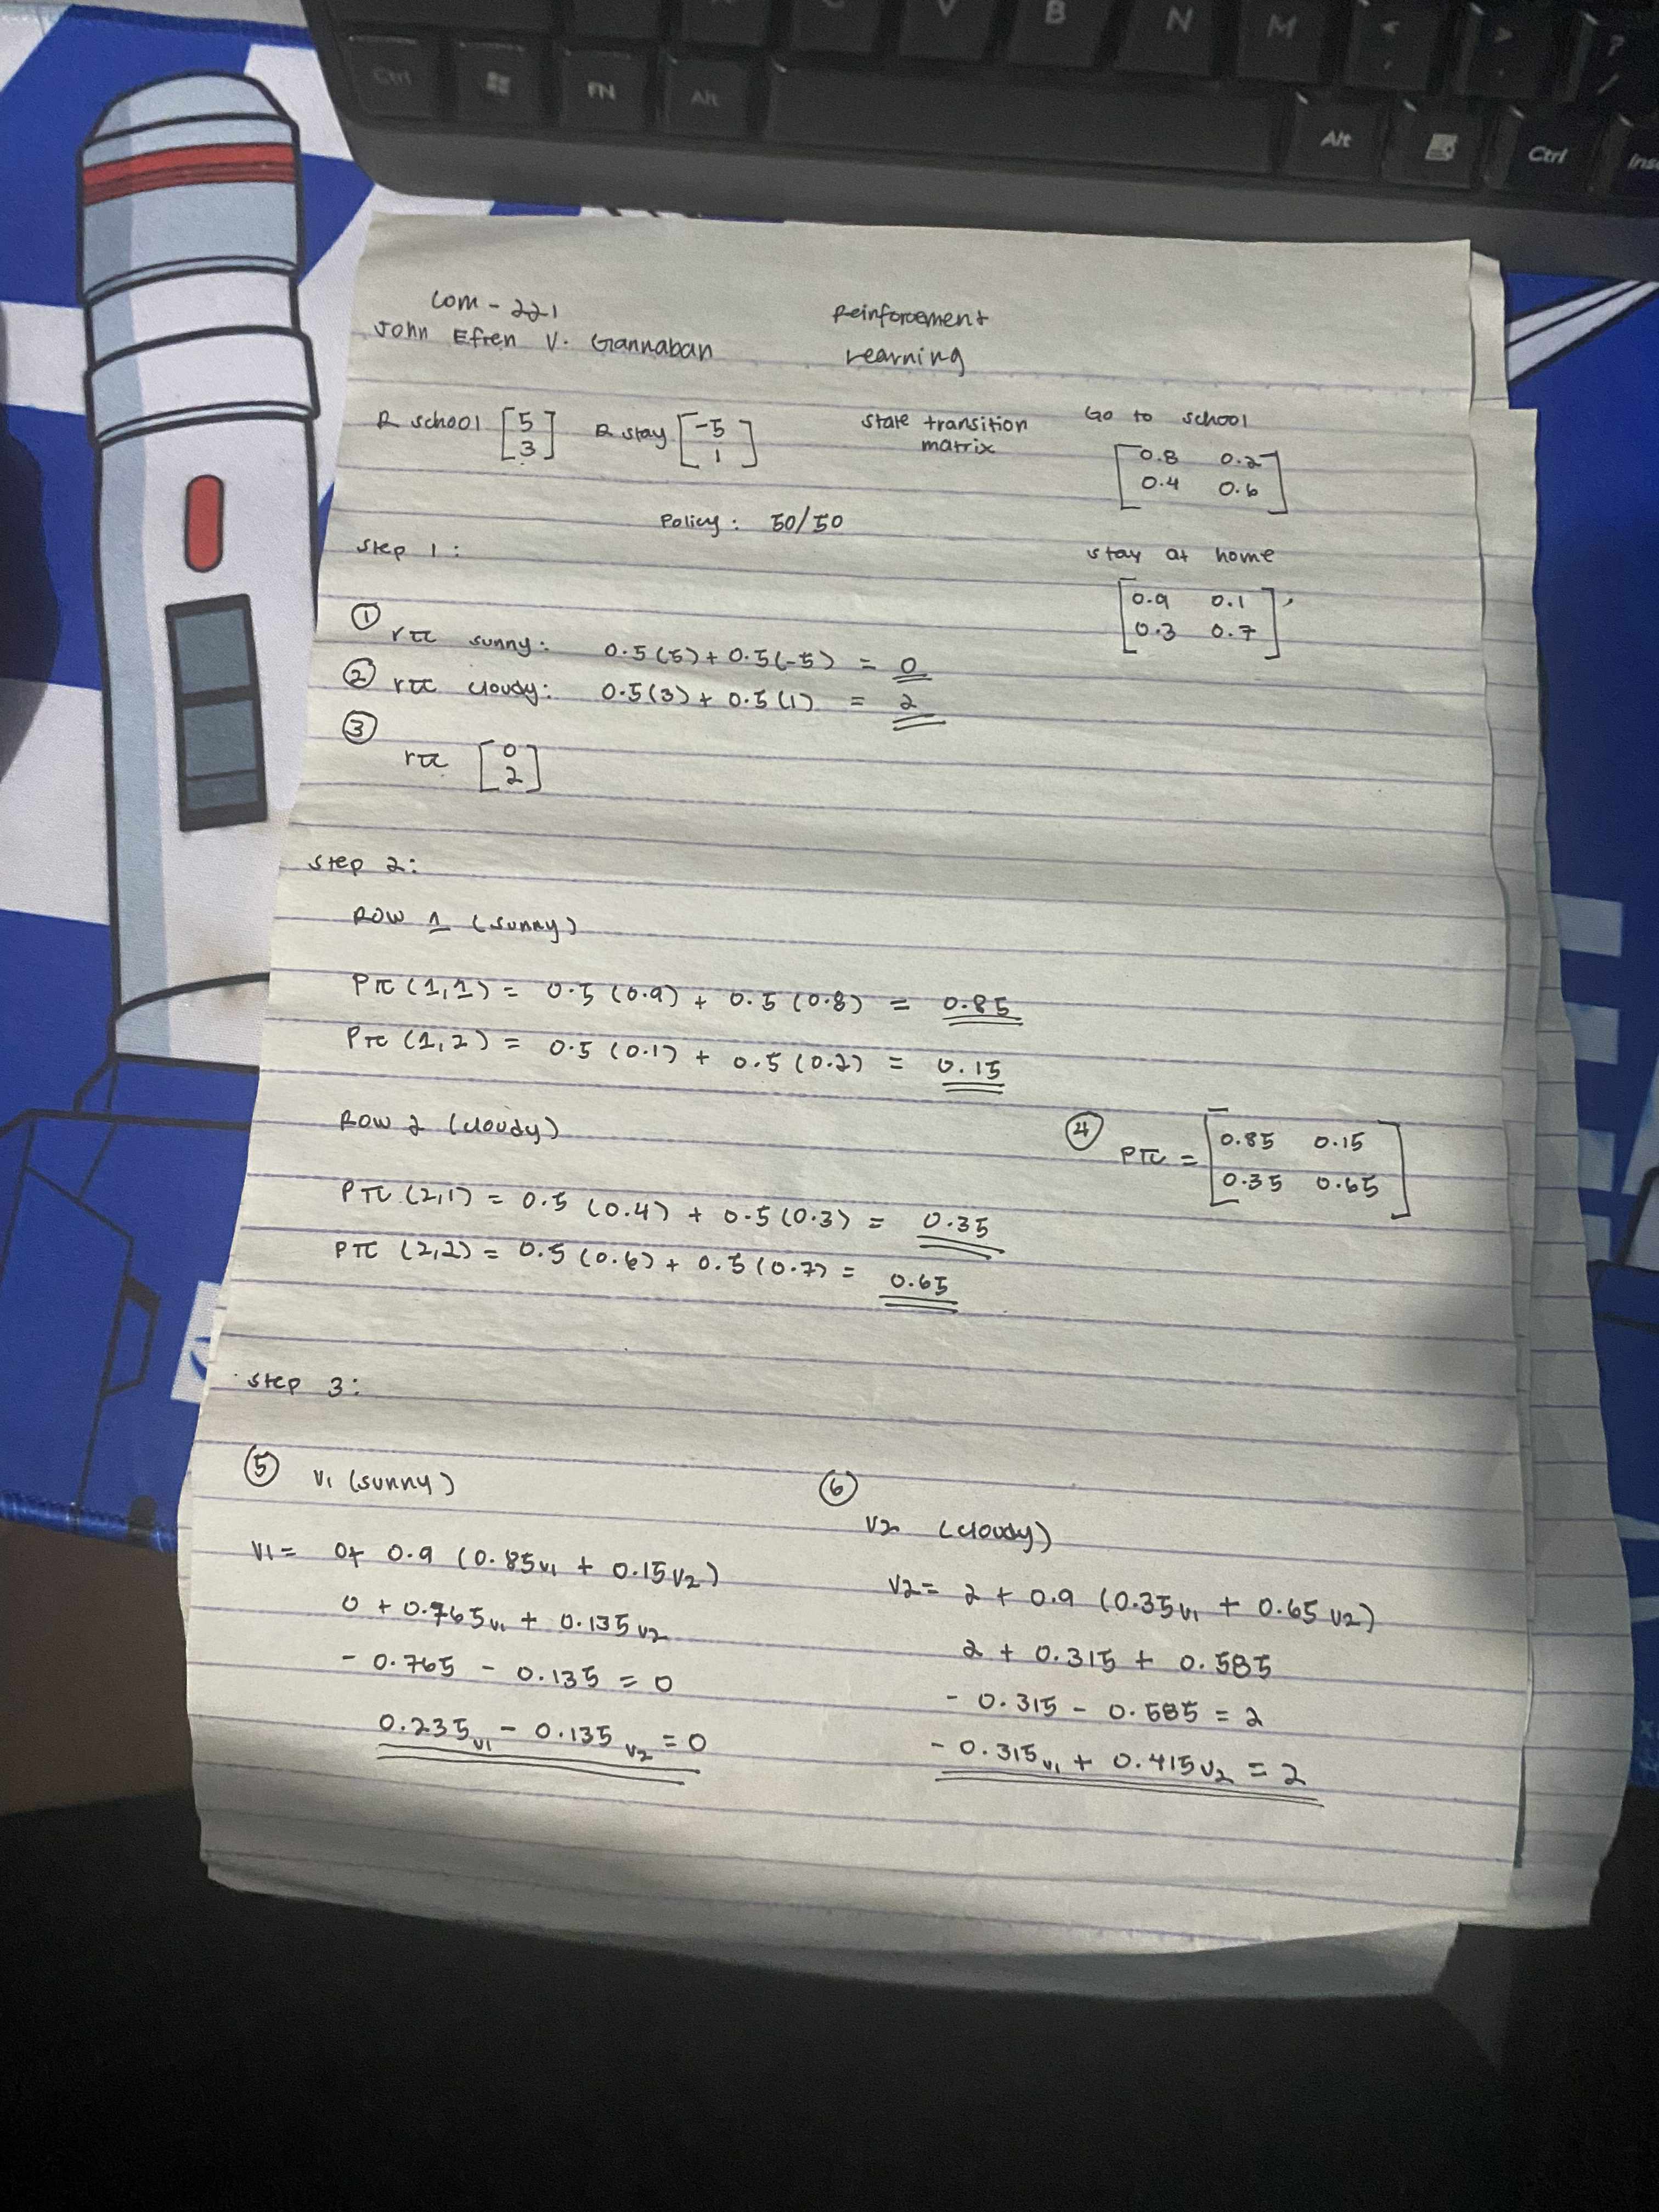 C V B N M < , > . ? /
Ctrl FN Alt Alt Ctrl Ins
Com - 221
John Efren V. Gannaban
Reinforcement
Learning
R school [5 3] R stay [-5 1]
state transition
matrix
Go to school
[0.8 0.2
0.4 0.6]
Policy: 50/50
stay at home
[0.9 0.1
0.3 0.7]
Step 1:
① rπ sunny: 0.5(5) + 0.5(-5) = 0
② rπ cloudy: 0.5(3) + 0.5(1) = 2
③
rπ [0 2]
Step 2:
Row 1 (sunny)
Pπ (1,1) = 0.5 (0.9) + 0.5 (0.8) = 0.85
Pπ (1,2) = 0.5 (0.1) + 0.5 (0.2) = 0.15
Row 2 (cloudy)
Pπ (2,1) = 0.5 (0.4) + 0.5 (0.3) = 0.35
Pπ (2,2) = 0.5 (0.6) + 0.5 (0.7) = 0.65
④ Pπ = [0.85 0.15
0.35 0.65]
Step 3:
⑤ V1 (sunny)
V1 = 0+ 0.9 (0.85v1 + 0.15v2)
0 + 0.765v1 + 0.135v2
- 0.765 - 0.135 = 0
0.235v1 - 0.135v2 = 0
⑥
V2 (cloudy)
V2 = 2 + 0.9 (0.35v1 + 0.65v2)
2 + 0.315 + 0.585
- 0.315 - 0.585 = 2
- 0.315v1 + 0.415v2 = 2